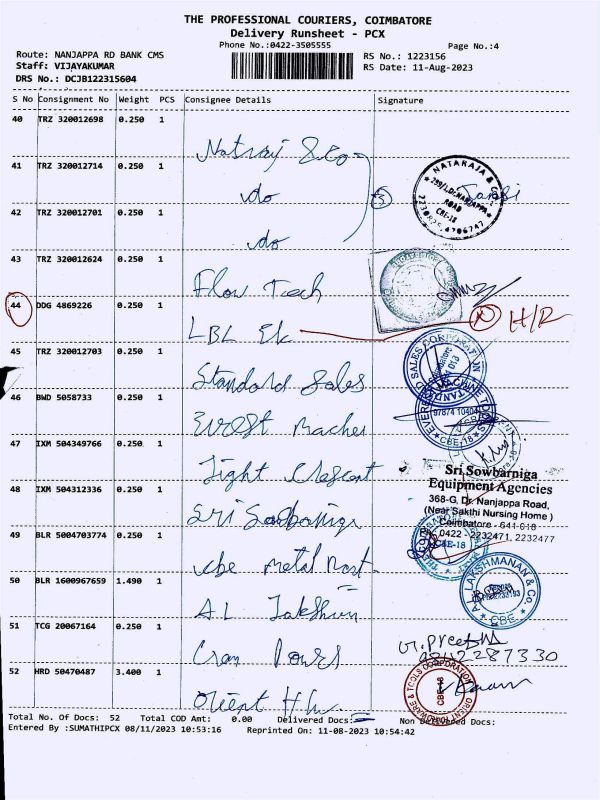 THE PROFESSIONAL COURIERS, COIMBATORE
Delivery Runsheet - PCX
Phone No.:0422-3505555
Page No.:4
Route: NANJAPPA RD BANK CMS
RS No.: 1223156
Staff: VIJAYAKUMAR
RS Date: 11-Aug-2023
DRS No.: DCJB122315604
S No Consignment No Weight PCS Consignee Details Signature
40 TRZ 320012698 0.250 1
Natraj & Co
41 TRZ 320012714 0.250 1
do
NATARAJA & CO
ROAD
CBE-18
42 TRZ 320012701 0.250 1
do
43 TRZ 320012624 0.250 1
Flow Tech
44 DDG 4869226 0.250 1
LBL Ek
H/R
45 TRZ 320012703 0.250 1
Standard Sales
46 BWD 5058733 0.250 1
Everest Machen
CBE-18
47 IXM 504349766 0.250 1
Light Crescent
Sri Sowbarniga
Equipment Agencies
368-G, Dr. Nanjappa Road,
(Near Sakthi Nursing Home )
Coimbatore - 641 018
0422 - 2232471, 2232477
48 IXM 504312336 0.250 1
Sri Sosbaniga
49 BLR 5004703774 0.250 1
cbe metal mart
CBE-18
50 BLR 1600967659 1.490 1
AL Lakshun
A. LAKSHMANAN & Co.
CBE
51 TCG 20067164 0.250 1
G. Preethi
52 HRD 50470487 3.400 1
Orient H.W.
ORIENT HARDWARE & TOOLS CORPORATION
CBE-18
Total No. Of Docs: 52 Total COD Amt: 0.00 Delivered Docs: Non Delivered Docs:
Entered By :SUMATHIPCX 08/11/2023 10:53:16 Reprinted On: 11-08-2023 10:54:42